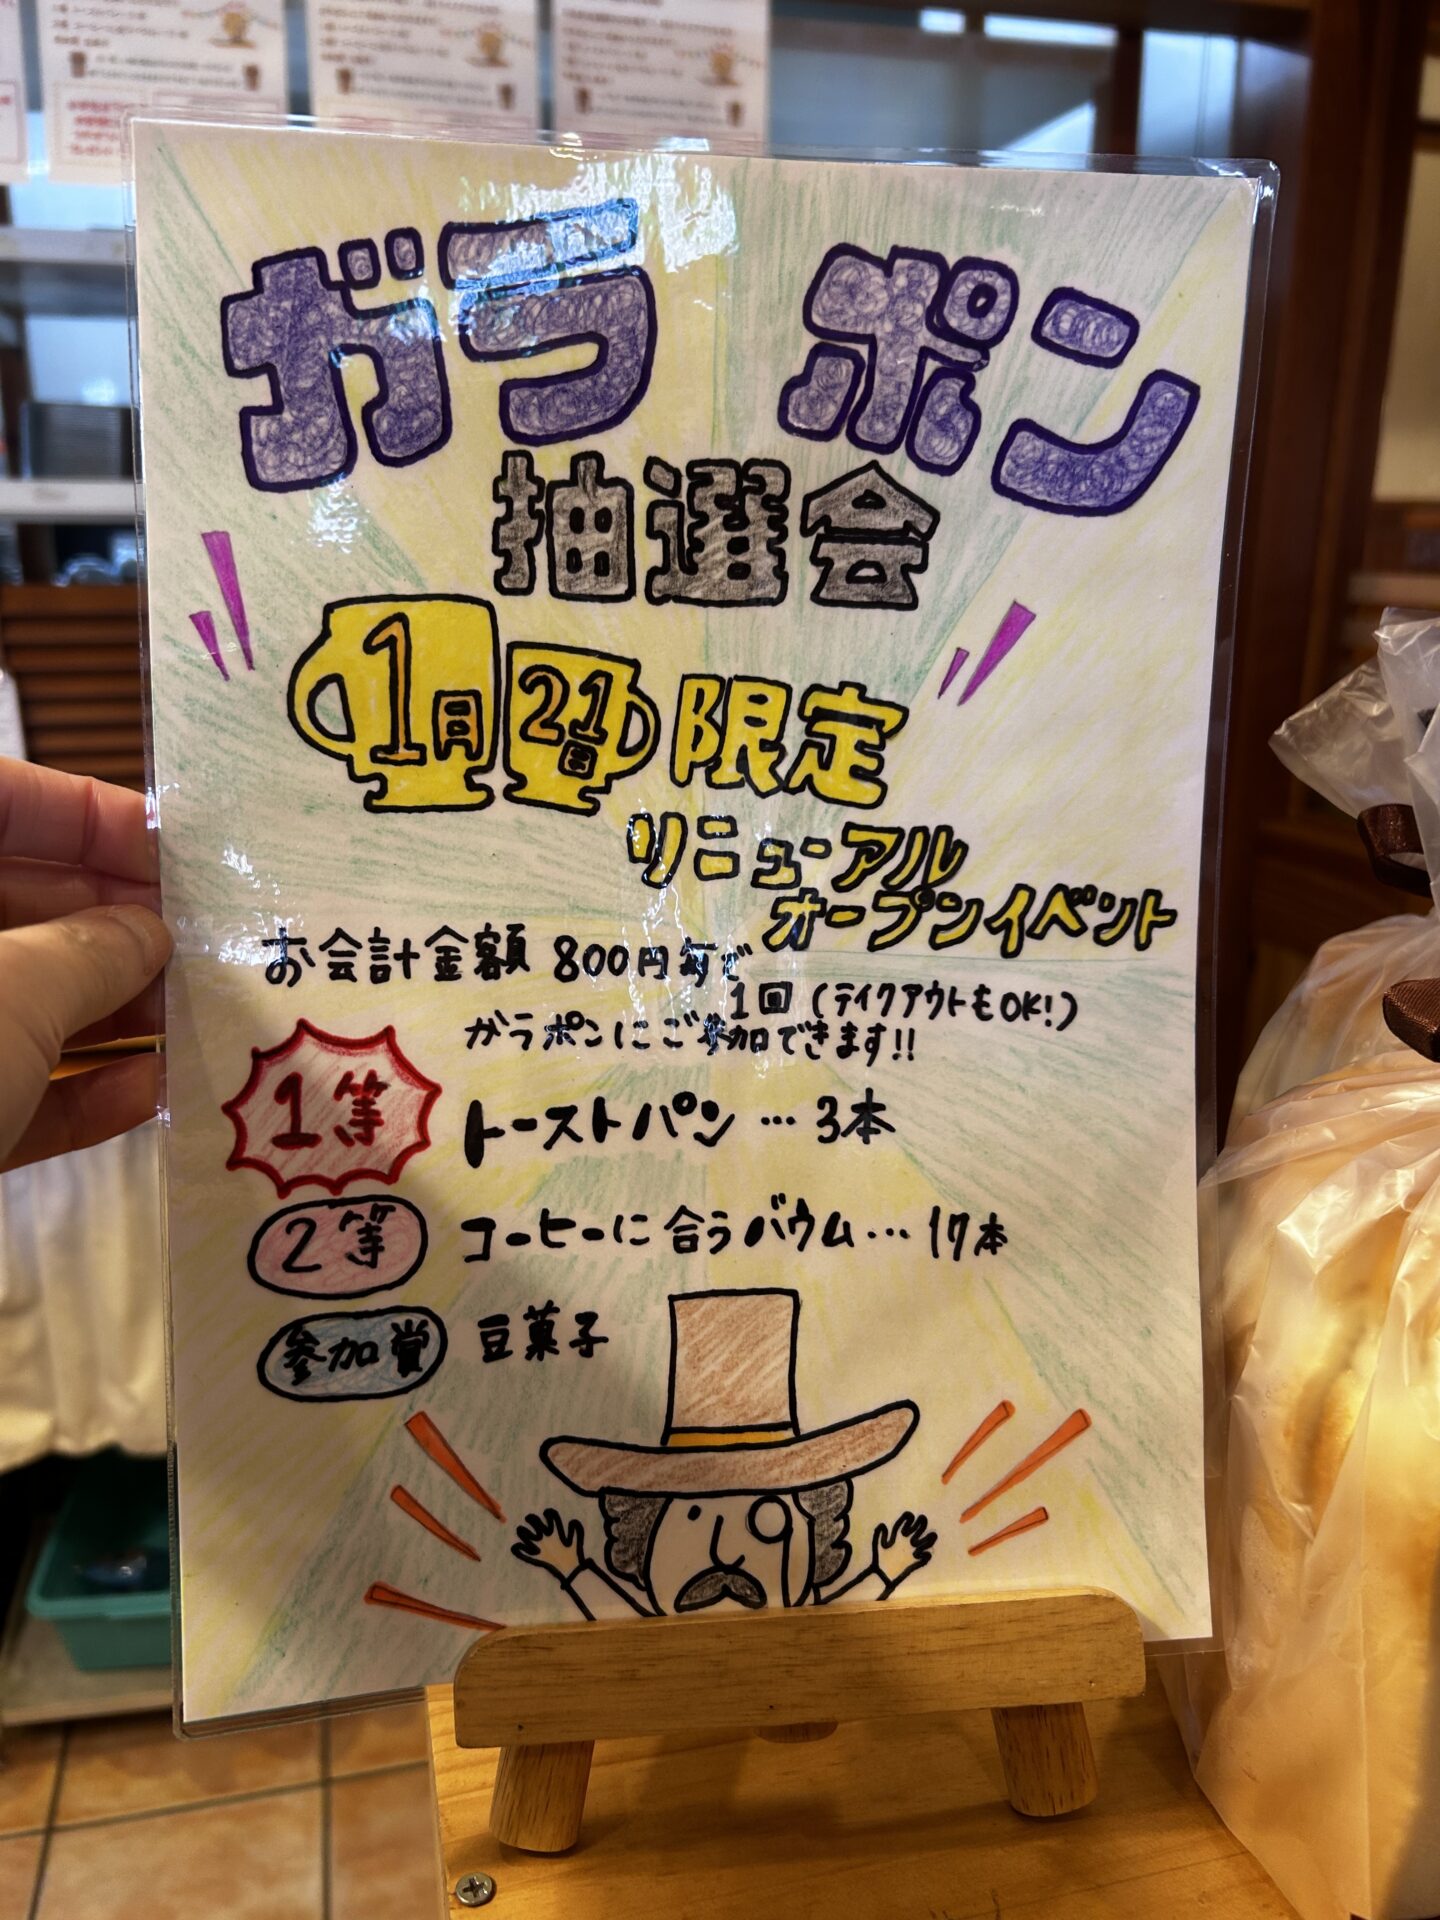 ガラポン
抽選会
1月21日限定
リニューアル
オープンイベント
お会計金額 800円毎で
1回(テイクアウトもOK!)
ガラポンにご参加できます!!
1等 トーストパン…3本
2等 コーヒーに合うバウム…17本
参加賞 豆菓子